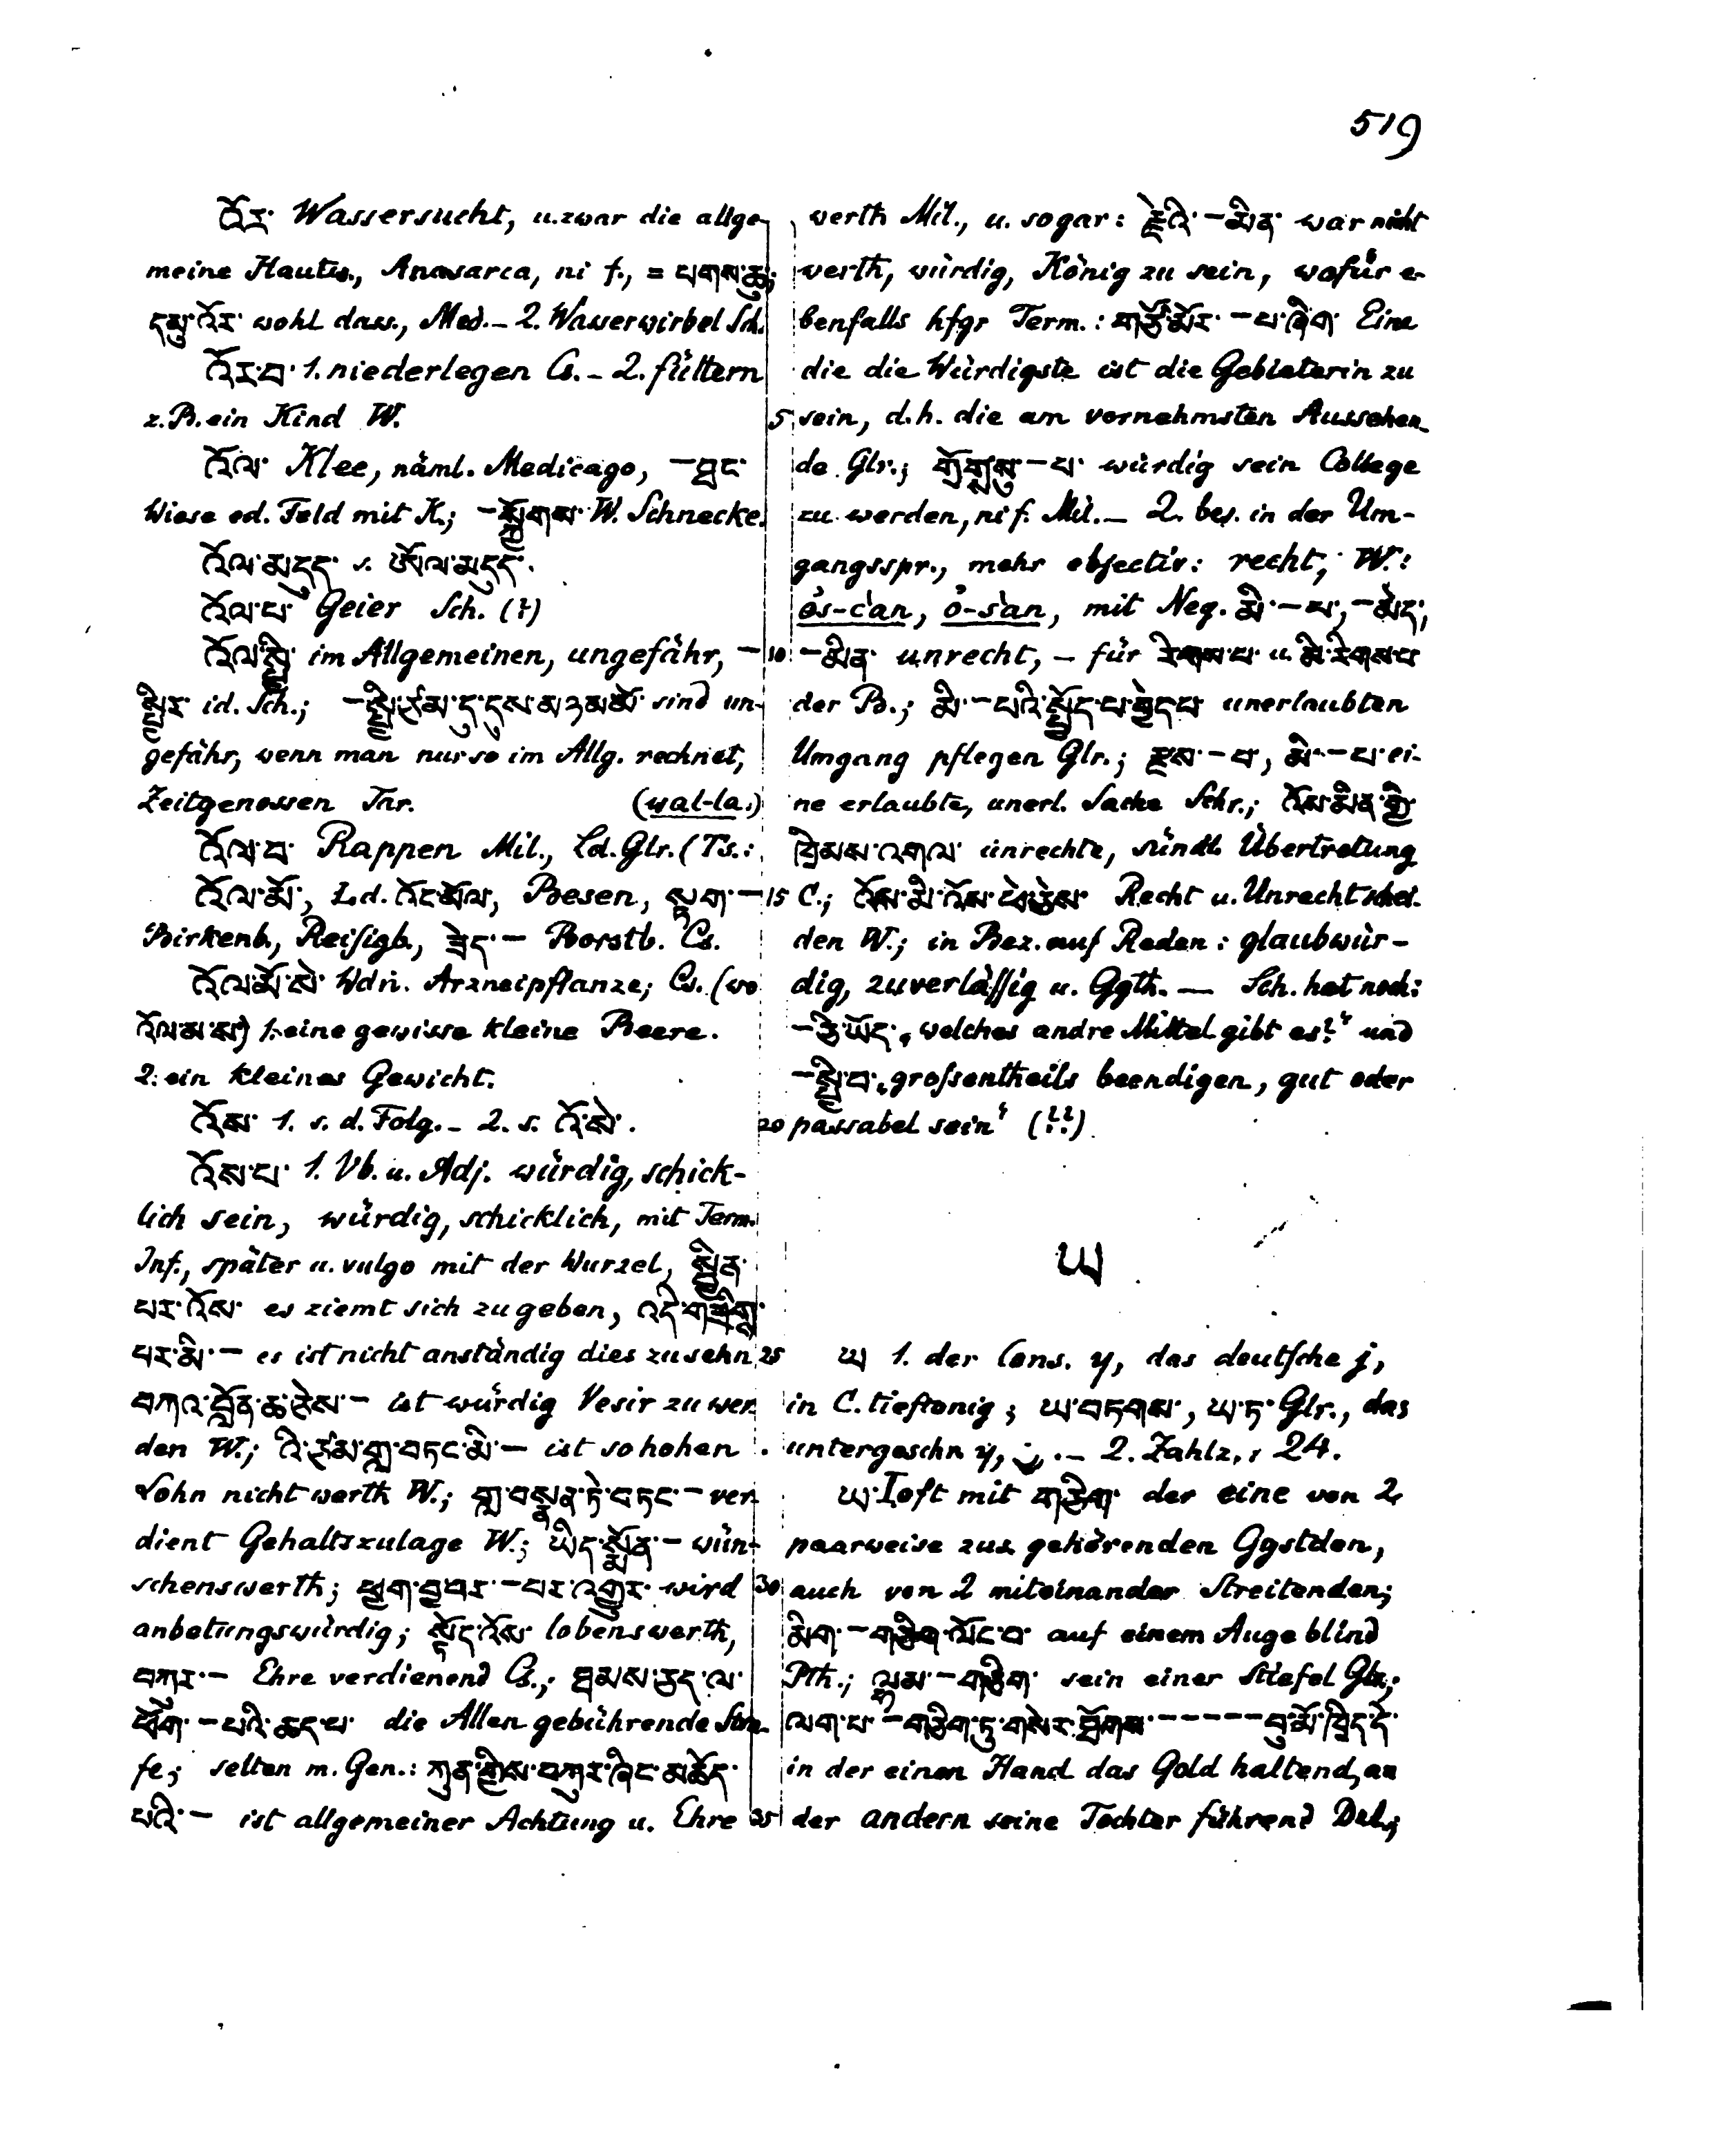 519
འོར་ Wassersucht, u. zwar die allge-
meine Hautw., Anasarca, ni f., = པགས་ཆུ;
དམུ་འོར་ wohl dass., Med. – 2. Wasserwirbel Sch.
འོར་བ་ 1. niederlegen Cs. – 2. füttern
z. B. ein Kind W.
འོལ་ Klee, näml. Medicago, –ཐང་
Wiese od. Feld mit K.; – W. Schnecke.
འོལ་མདུད་ s. ཨོལ་མདུད་.
འོལ་པ་ Geier Sch. (?)
འོལ་སྤྱི་ im Allgemeinen, ungefähr, –
སྤྱིར་ id. Sch.; –སྤྱི་ཙམ་དུ་དུས་མཉམ་མོ་ sind un-
gefähr, wenn man nur so im Allg. rechnet,
Zeitgenossen Tar. (wal-la.)
འོལ་བ་ Rappen Mil., Ld. Glr. (Ts.:
འོལ་མོ་, Ld. འོང་མོལ, Besen, སྟག་–
Birkenb., Reisigb., ཟེད་– Borstb. Cs.
འོལ་མོ་སེ་ Wdn. Arzneipflanze; Cs. (wo
འོལ་མ་ས) 1. eine gewisse kleine Beere.
2. ein kleines Gewicht.
འོས་ 1. s. d. Folg. – 2. s. འོ་སེ་.
འོས་པ་ 1. Vb. u. Adj. würdig, schick-
lich sein, würdig, schicklich, mit Term.
Inf., später u. vulgo mit der Wurzel, སྦྱིན་
པར་འོས་ es ziemt sich zu geben, འདི་གཟིགས་
པར་མི་– es ist nicht anständig dies zu sehn,
བཀའ་བློན་ཆ་ཅེས་– ist würdig Vesir zu wer-
den W.; འི་ཙམ་གླ་བཏང་མི་– ist so hohen
Lohn nicht werth W.; གླ་བསྣན་ཏེ་བཏང་– ver-
dient Gehaltszulage W.; ཡིད་སྨོན་– wün-
schenswerth; ཕྱག་བྱ་བར་–པར་འགྱུར་ wird
anbetungswürdig; སྟོད་འོས་ lobenswerth,
བཀུར་– Ehre verdienend Cs.; ཐམས་ཅད་ལ་
ཕོག་–པའི་ཆད་པ་ die Allen gebührende Stra-
fe; selten m. Gen.: ཀུན་གྱིས་བཀུར་ཞིང་མཆོད་
པའི་– ist allgemeiner Achtung u. Ehre
werth Mil., u. sogar: རྗེའི་–མིན་ war nicht
werth, würdig, König zu sein, wofür e-
benfalls hfgr Term.: གཙོ་མོར་–པ་ཞིག་ Eine
die die Würdigste ist die Gebieterin zu
5 sein, d. h. die am vornehmsten Aussehen-
de Glr.; གྲོགསུ་–པ་ würdig sein College
zu werden, ni f. Mil. – 2. bes. in der Um-
gangsspr., mehr objectiv: recht, W.:
ós-c̀an, ó-s̀an, mit Neg. མི་–པ་, –མེད་,
10 –མིན་ unrecht, – für རིགས་པ་ u. མི་རིགས་པ
der B.; མི་–པའི་སྤྱོད་པ་བྱེད་པ་ unerlaubten
Umgang pflegen Glr.; རྫས་–པ་, མི་–པ་ ei-
ne erlaubte, unerl. Sache Schr.; འོས་མིན་གྱི་
ཁྲིམས་འགལ་ unrechte, sündl. Übertretung
15 C.; འོས་མི་འོས་ཕྱེ་ཅེས་ Recht u. Unrecht schei-
den W.; in Bez. auf Reden: glaubwür-
dig, zuverläßig u. Ggth. — Sch. hat noch:
–ཅི་ཡོད་ „welches andre Mittel gibt es?" und
–སྤྱི་བ་ „großentheils beendigen, gut oder
20 passabel sein" (??)
ཡ
25 ཡ 1. der Cons. y, das deutsche j,
in C. tieftonig; ཡ་བཏགས་, ཡ་ཏ་ Glr., das
untergeschn y, ྱ. – 2. Zahlz.: 24.
ཡ་ I oft mit གཅིག་ der eine von 2
paarweise zus. gehörenden Ggstden,
30 auch von 2 miteinander Streitenden;
མིག་–གཅིག་ལོང་བ་ auf einem Auge blind
Pth.; ལྷམ་–གཅིག་ sein einer Stiefel Glr.;
ལག་པ་–གཅིག་ཏུ་གསེར་ཐོགས་ – – – – – བུ་མོ་ཁྲིད་དེ་
in der einen Hand das Gold haltend, an
35 der andern seine Tochter führend Del.;